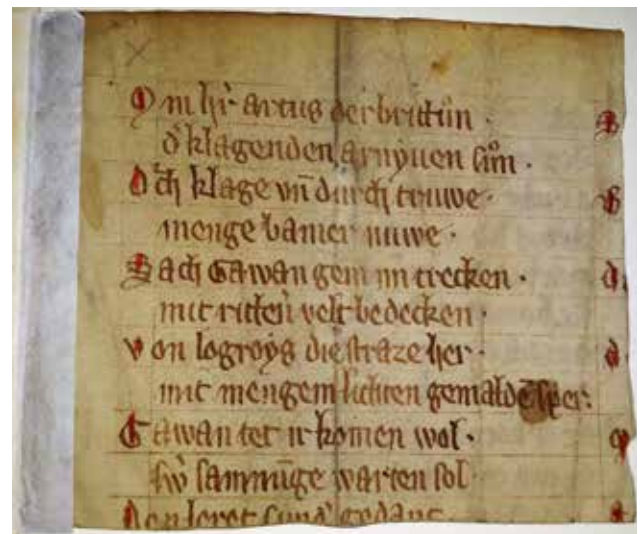 Om hr̄ artus der brittůn ·
d̾ klagenden, arnyuen sůn ·
Dch klage vn̄ durch truwe ·
menge banier nuwe ·
Sach Gawan gem im trecken ·
mit ritter̄ velt bedecken ·
von logroys die straze her ·
mit mengem lichten gemalde sper:
Gawan tet ir komen wol ·
sw̾ samnūge warten sol